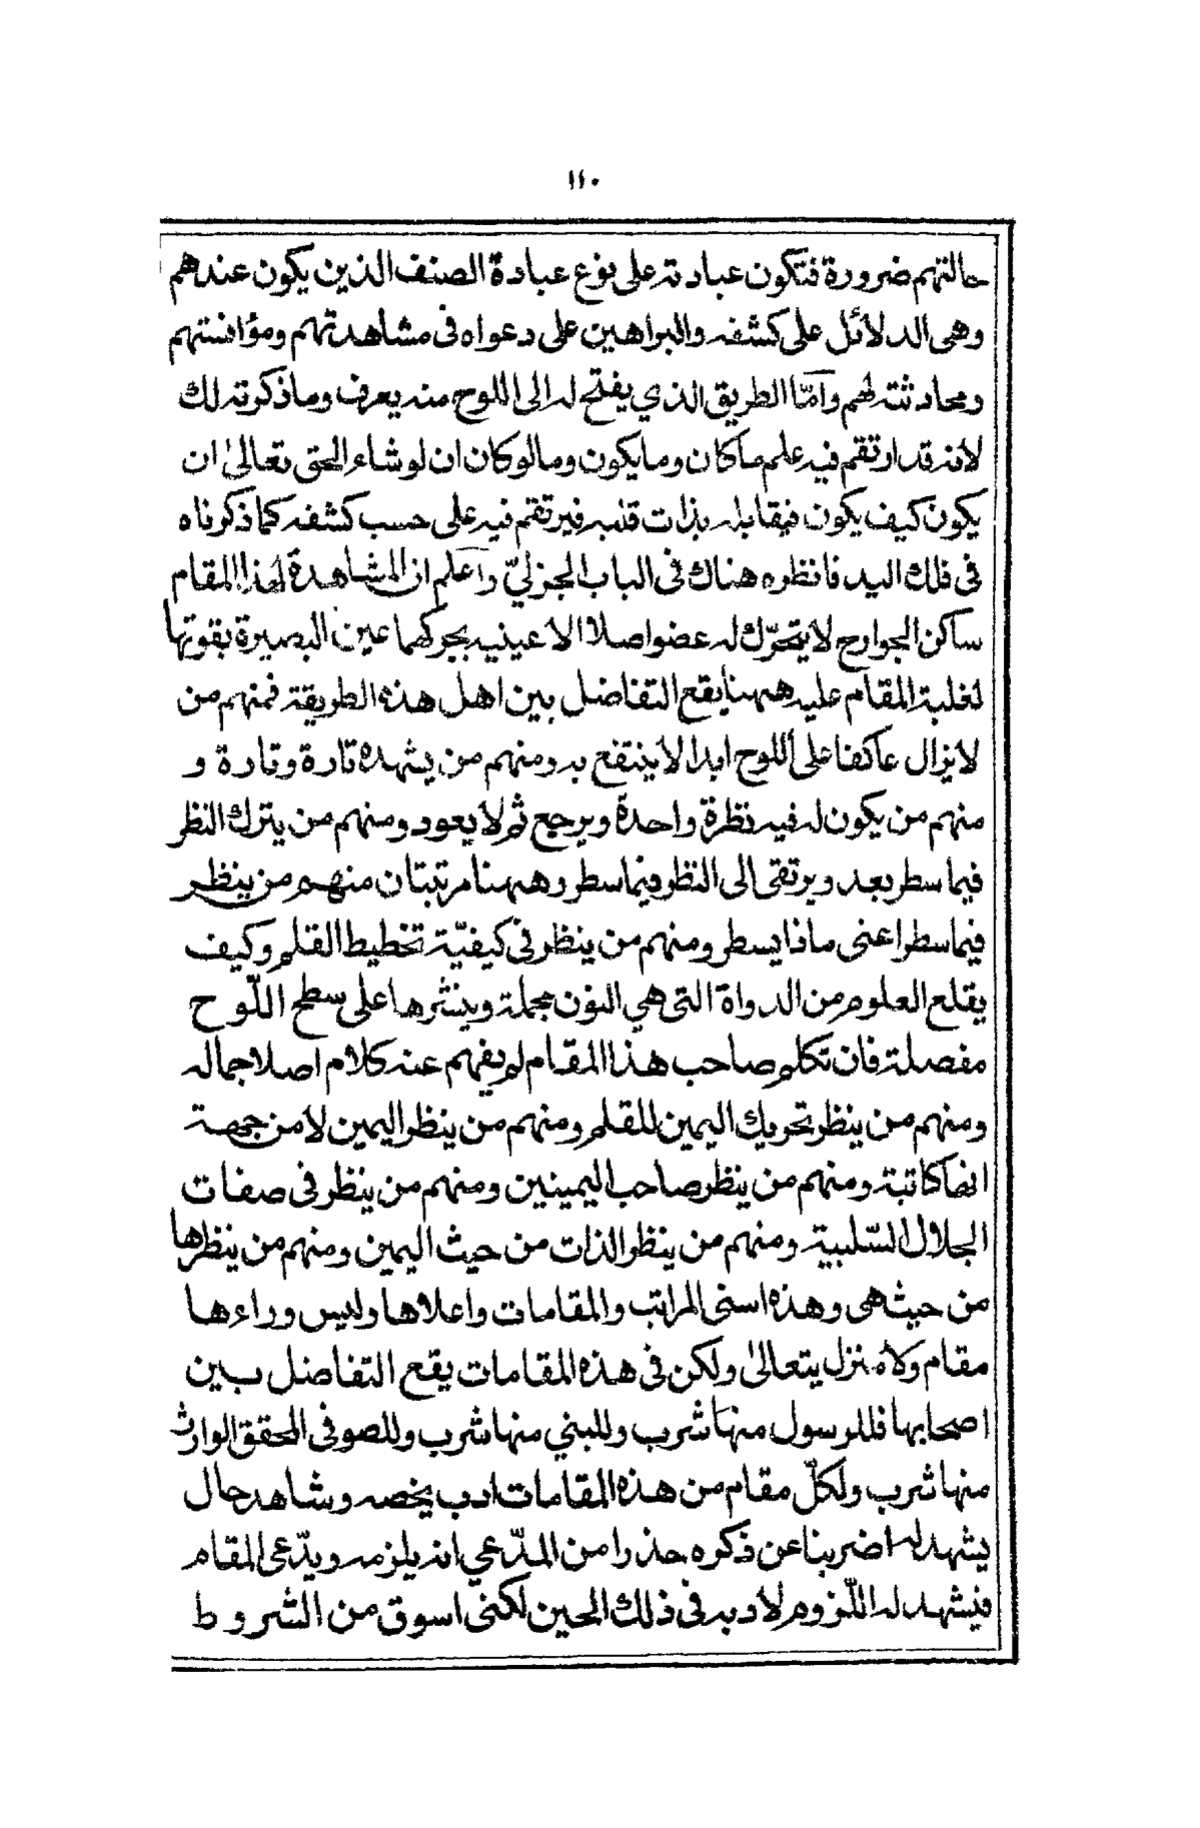 ١١٠
حالتهم ضرورة فتكون عبادته على نوع عبادة الصنف الذين يكون عندهم
وهى الدلائل على كشفه والبراهين على دعواه فى مشاهدتهم ومؤانستهم
ومحادثته لهم وأمّا الطريق الذي يفتح له الى اللوح منه يعرف وماذكرته لك
لأنه قد ارتقم فيه علم ماكان ومايكون ومالوكان ان لوشاء الحق تعالىٰ ان
يكون كيف يكون فيقابله بذات قلبه فيرتقم فيه على حسب كشفه كماذكرناه
فى فلك اليد فانظره هناك فى الباب الجزليّ وأعلم ان المشاهدة لهذا المقام
ساكن الجوارح لايتحرّك له عضو اصلا الا عينيه يحركهما عين البصيرة بقوتها
لغلبة المقام عليه ههنا يقع التفاضل بين اهل هذه الطريقة فمنهم من
لايزال عاكفا على اللوح ابدا لاينتفع به ومنهم من يشهده تارة وتارة و
منهم من يكون له فيه نظرة واحدة ويرجع ثم لايعود ومنهم من يترك النظر
فيما سطر بعد ويرتقى الى النظر فيماسطر وههنا مرتبتان منهم من ينظر
فيماسطر اعنى ماذا يسطر ومنهم من ينظر فى كيفيّة تخطيط القلم وكيف
يقلع العلوم من الدواة التى هي النون مجملة وينثرها على سطح اللّوح
مفصلة فان تكلم صاحب هذا المقام لم يفهم عنه كلام اصلا جماله
ومنهم من ينظر تحريك اليمين للقلم ومنهم من ينظر اليمين لامن جهة
انها كاتبة ومنهم من ينظر صاحب اليمينين ومنهم من ينظر فى صفات
الجلال السّلبية ومنهم من ينظر الذات من حيث اليمين ومنهم من ينظرها
من حيث هى وهذه اسنى المراتب والمقامات واعلاها وليس وراءها
مقام ولامنزل يتعالىٰ ولكن فى هذه المقامات يقع التفاضل بين
اصحابها فللرسول منها شرب وللنبي منها شرب وللصوفى المحقق الوارث
منها شرب ولكلّ مقام من هذه المقامات ادب يخصه وشاهد حال
يشهد له اضربنا عن ذكره حذرا من المدّعي انه يلزمه ويدّعى المقام
فيشهد له اللّزوم لأدبه فى ذلك الحين لكنى اسوق من الشروط